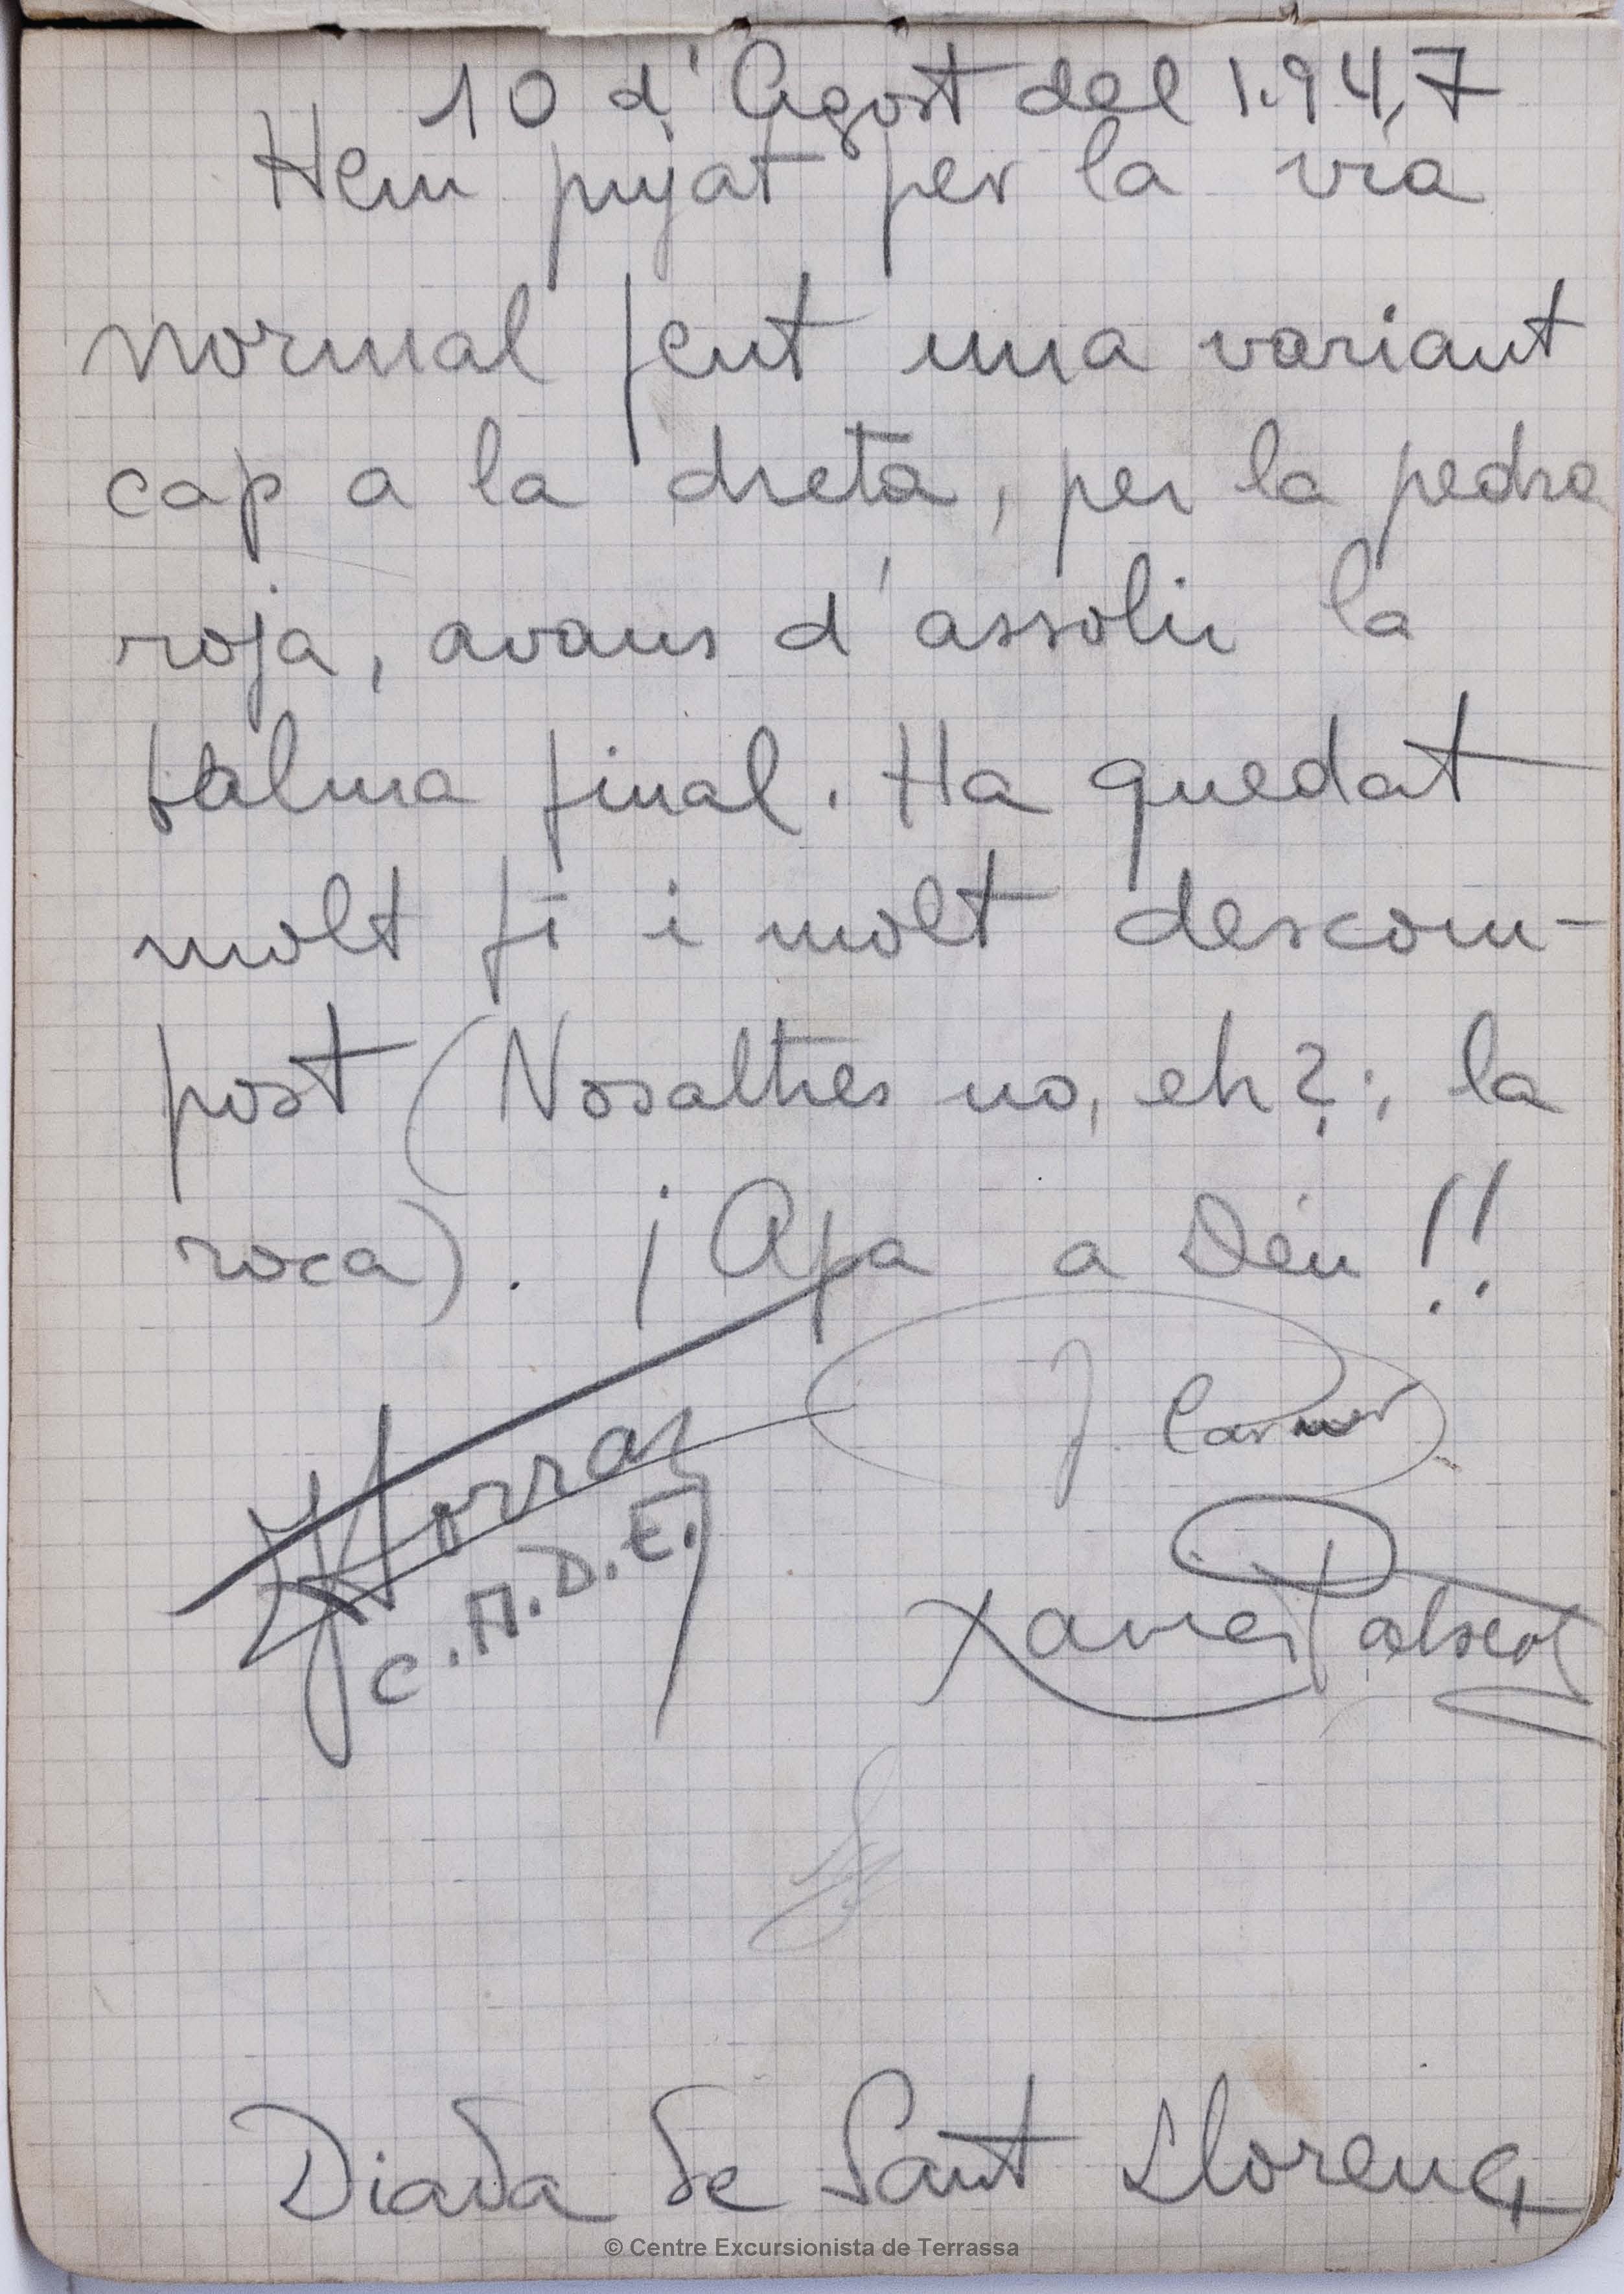 10 d'Agost del 1.947
Hem pujat per la via
normal fent una variant
cap a la dreta, per la pedra
roja, avans d'assolir la
balma final. Ha quedat
molt fi i molt descom-
post (Nosaltres no, eh?; la
roca). ¡Apa a Déu!!
J.
C.M.D.E.
Xavier
Diada de Sant Llorenç
© Centre Excursionista de Terrassa